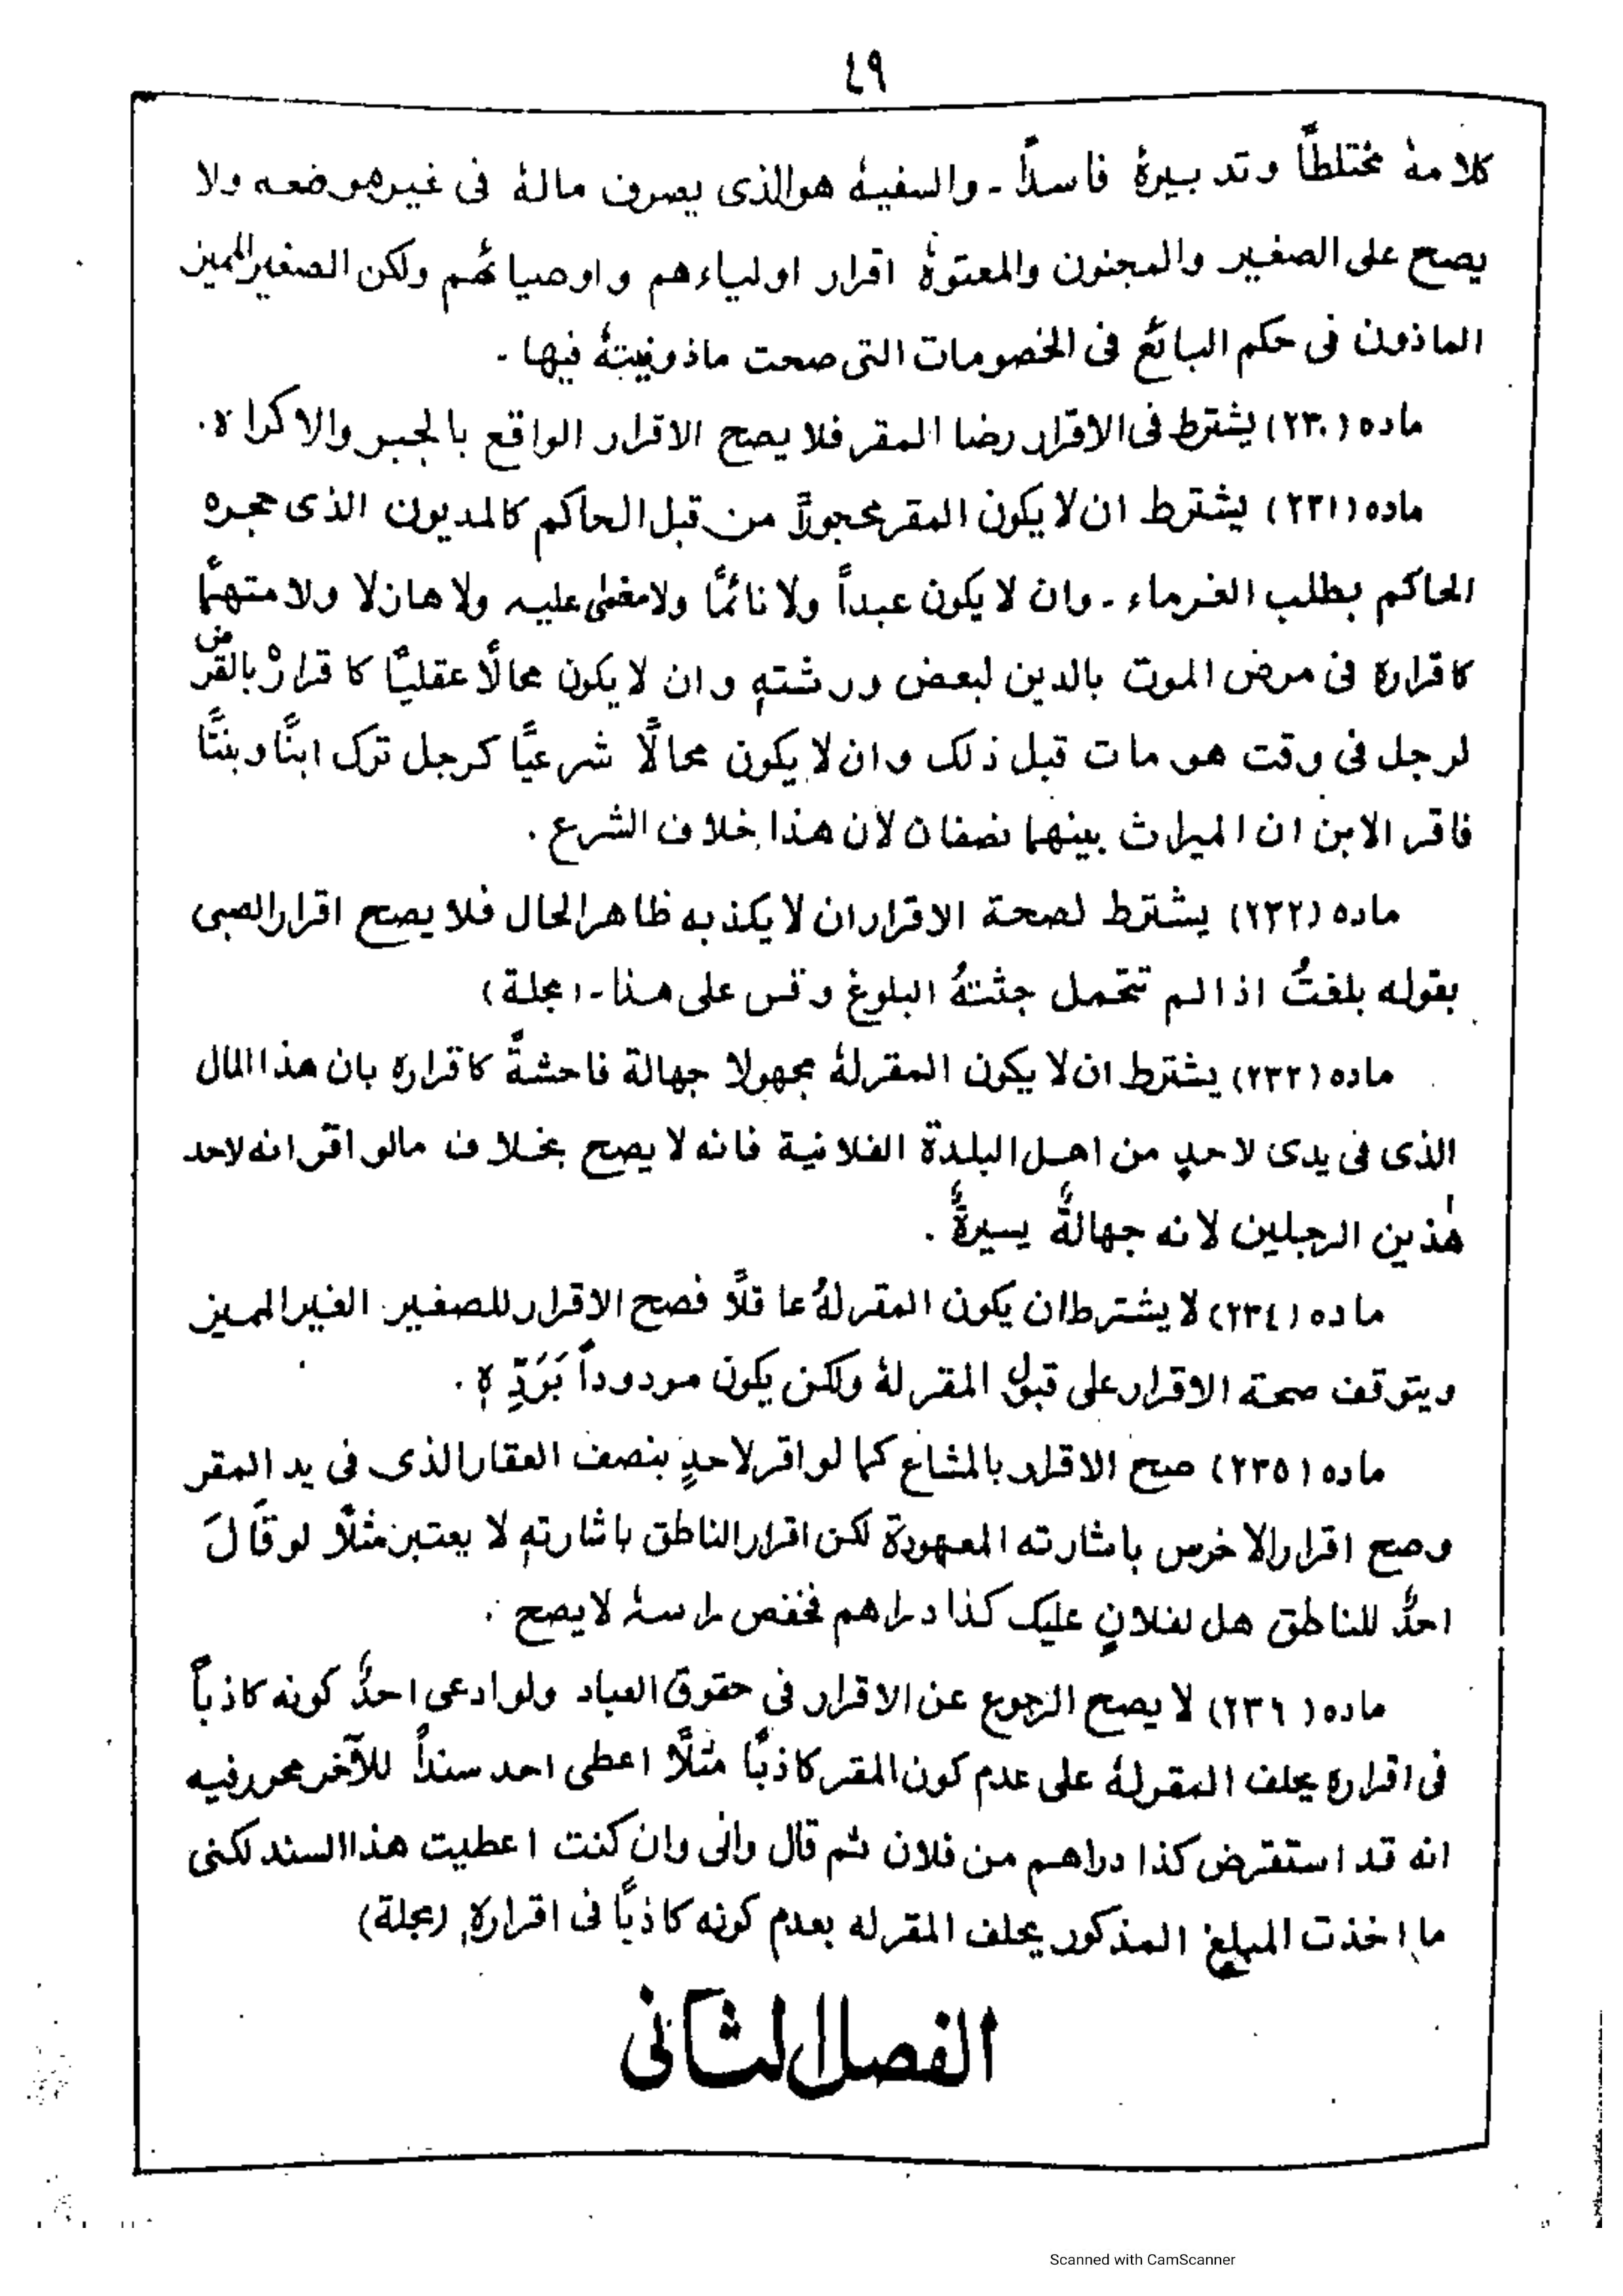 ٤٩
كلامهٗ مختلطًا وتدبيرهٗ فاسداً ـ والسفيهٗ هوالذى يصرف مالهٗ فى غيرموضعه ولا
يصح على الصغير والمجنون والمعتوهٗ اقرار اولياءهم و اوصيائهُم ولكن الصغيرالمميز
الماذون فى حكم البائعٗ فى الخصومات التى صحت ماذونيتهٗ فيها ـ
ماده (٢٣٠) يشترط فى الاقرار رضا المقر فلا يصح الاقرار الواقع بالجبر والاكراه.
ماده (٢٣١) يشترط ان لا يكون المقرمحجوراً من قبل الحاكم كالمديون الذى حجره
الحاكم بطلب الغرماء ـ وان لا يكون عبداً ولا نائمًا ولامغمٰى عليه ولا هازلا ولا متهمًا
كاقراره فى مرض الموت بالدين لبعض ورشتهٖ و ان لا يكون محالًا عقليًا كا قرارهٗ بالقرض
لرجل فى وقت هو مات قبل ذلك و ان لا يكون محالًا شرعيًا كرجل ترك ابنًا وبنتًا
فاقر الابن ان الميراث بينهما نصفان لان هذا خلاف الشرع .
ماده (٢٣٢) يشترط لصحة الاقراران لا يكذ به ظاهرالحال فلا يصح اقرارالصبى
بقوله بلغتُ اذا لم تتحمل جثتهُ البلوغ و قس على هذا ـ (مجلة)
ماده (٢٣٣) يشترط ان لا يكون المقرلهٗ مجهولا جهالة فاحشةً كاقراره بان هذا المال
الذى فى يدى لاحدٍ من اهل البلدة الفلانية فانه لا يصح بخلاف مالو اقر انه لاحد
هٰذين الرجلين لانه جهالةٌ يسيرةٌ .
ماده (٢٣٤) لا يشترط ان يكون المقرلهٗ عاقلًا فصح الاقرار للصغير الغيرالمميز
ويتوقف صحة الاقرار على قبول المقرلهٗ ولكن يكون مردوداً بَرَدِّهٖ .
ماده (٢٣٥) صح الاقرار بالمشاع كما لو اقر لاحدٍ بنصف العقارالذى فى يد المقر
وصح اقرار الاخرس باشارته المعهودة لكن اقرار الناطق باشارتهٖ لا يعتبر مثلًا لو قَالَ
احدٌ للناطق هل لفلانٍ عليك كذا دراهم فخفض راسهٗ لا يصح .
ماده (٢٣٦) لا يصح الرجوع عن الاقرار فى حقوق العباد ولو ادعى احدٌ كونه كاذباً
فى اقراره يحلف المقرلهٗ على عدم كون المقر كاذبًا مثلًا اعطى احد سنداً للآخر محررفيه
انه قد استقرض كذا دراهم من فلان ثم قال وانى وان كنت اعطيت هذا السند لكنى
ما اخذت المبلغ المذكور يحلف المقرله بعدم كونه كاذبًا فى اقرارهٖ (مجلة)
الفصل الثانى
Scanned with CamScanner